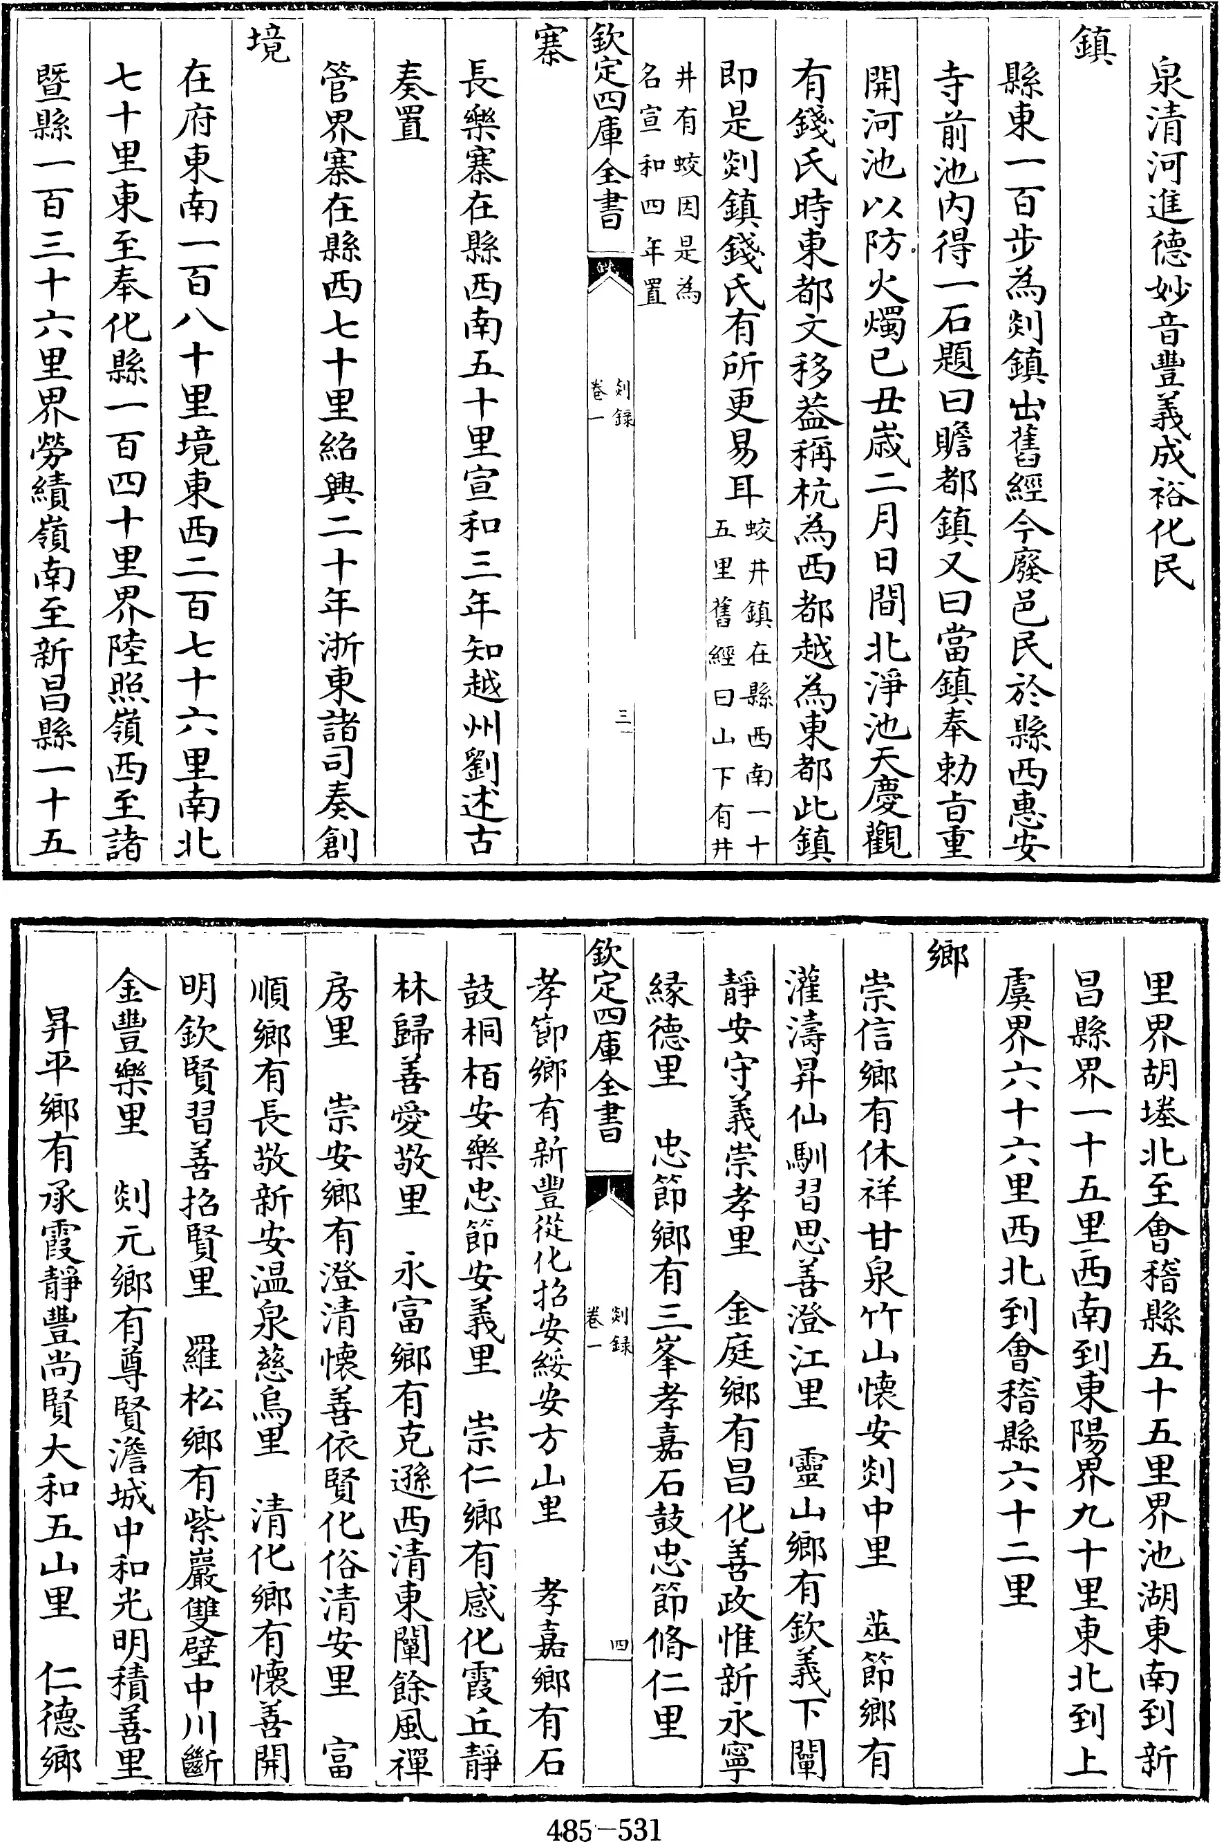 泉清河進德妙音豐義成裕化民
鎮
縣東一百步為剡鎮出舊經今廢邑民於縣西惠安
寺前池内得一石題曰瞻都鎮又曰當鎮奉勅㫖重
開河池以防火燭已丑嵗二月日間北淨池天慶觀
有錢氏時東都文移葢稱杭為西都越為東都此鎮
即是剡鎮錢氏有所更易耳蛟井鎮在縣西南一十
五里舊經曰山下有井
井有蛟因是為
名宣和四年置
欽定四庫全書
剡錄
卷一
三
寨
長樂寨在縣西南五十里宣和三年知越州劉述古
奏置
管界寨在縣西七十里紹興二十年浙東諸司奏創
境
在府東南一百八十里境東西二百七十六里南北
七十里東至奉化縣一百四十里界陸照嶺西至諸
暨縣一百三十六里界勞績嶺南至新昌縣一十五
里界胡塂北至會稽縣五十五里界池湖東南到新
昌縣界一十五里西南到東陽界九十里東北到上
虞界六十六里西北到會稽縣六十二里
鄉
崇信鄉有休祥甘泉竹山懐安剡中里　並節鄉有
灌濤昇仙馴習思善澄江里　靈山鄉有欽義下闡
靜安守義崇孝里　金庭鄉有昌化善政惟新永寧
緣德里　忠節鄉有三峯孝嘉石鼓忠節脩仁里
欽定四庫全書
剡錄
卷一
四
孝節鄉有新豐從化招安綏安方山里　孝嘉鄉有石
鼓桐栢安樂忠節安義里　崇仁鄉有感化霞丘靜
林歸善愛敬里　永富鄉有克遜西清東闡餘風禪
房里　崇安鄉有澄清懐善依賢化俗清安里　富
順鄉有長敬新安温泉慈烏里　清化鄉有懐善開
明欽賢習善招賢里　羅松鄉有紫巖雙壁中川斷
金豐樂里　剡元鄉有尊賢澹城中和光明積善里
昇平鄉有承霞靜豐尚賢大和五山里　仁德鄉
485-531